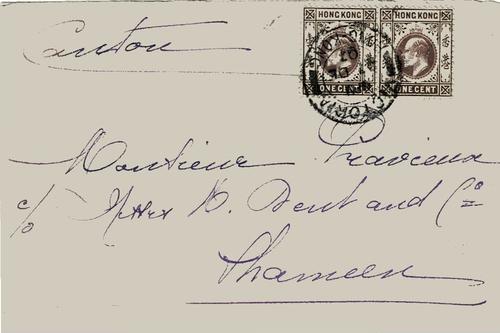 HONG KONG HONG KONG
ONE CENT ONE CENT
VICTORIA
HONG KONG
Canton
Monsieur
c/o Messrs H. Dent and Co
Shameen